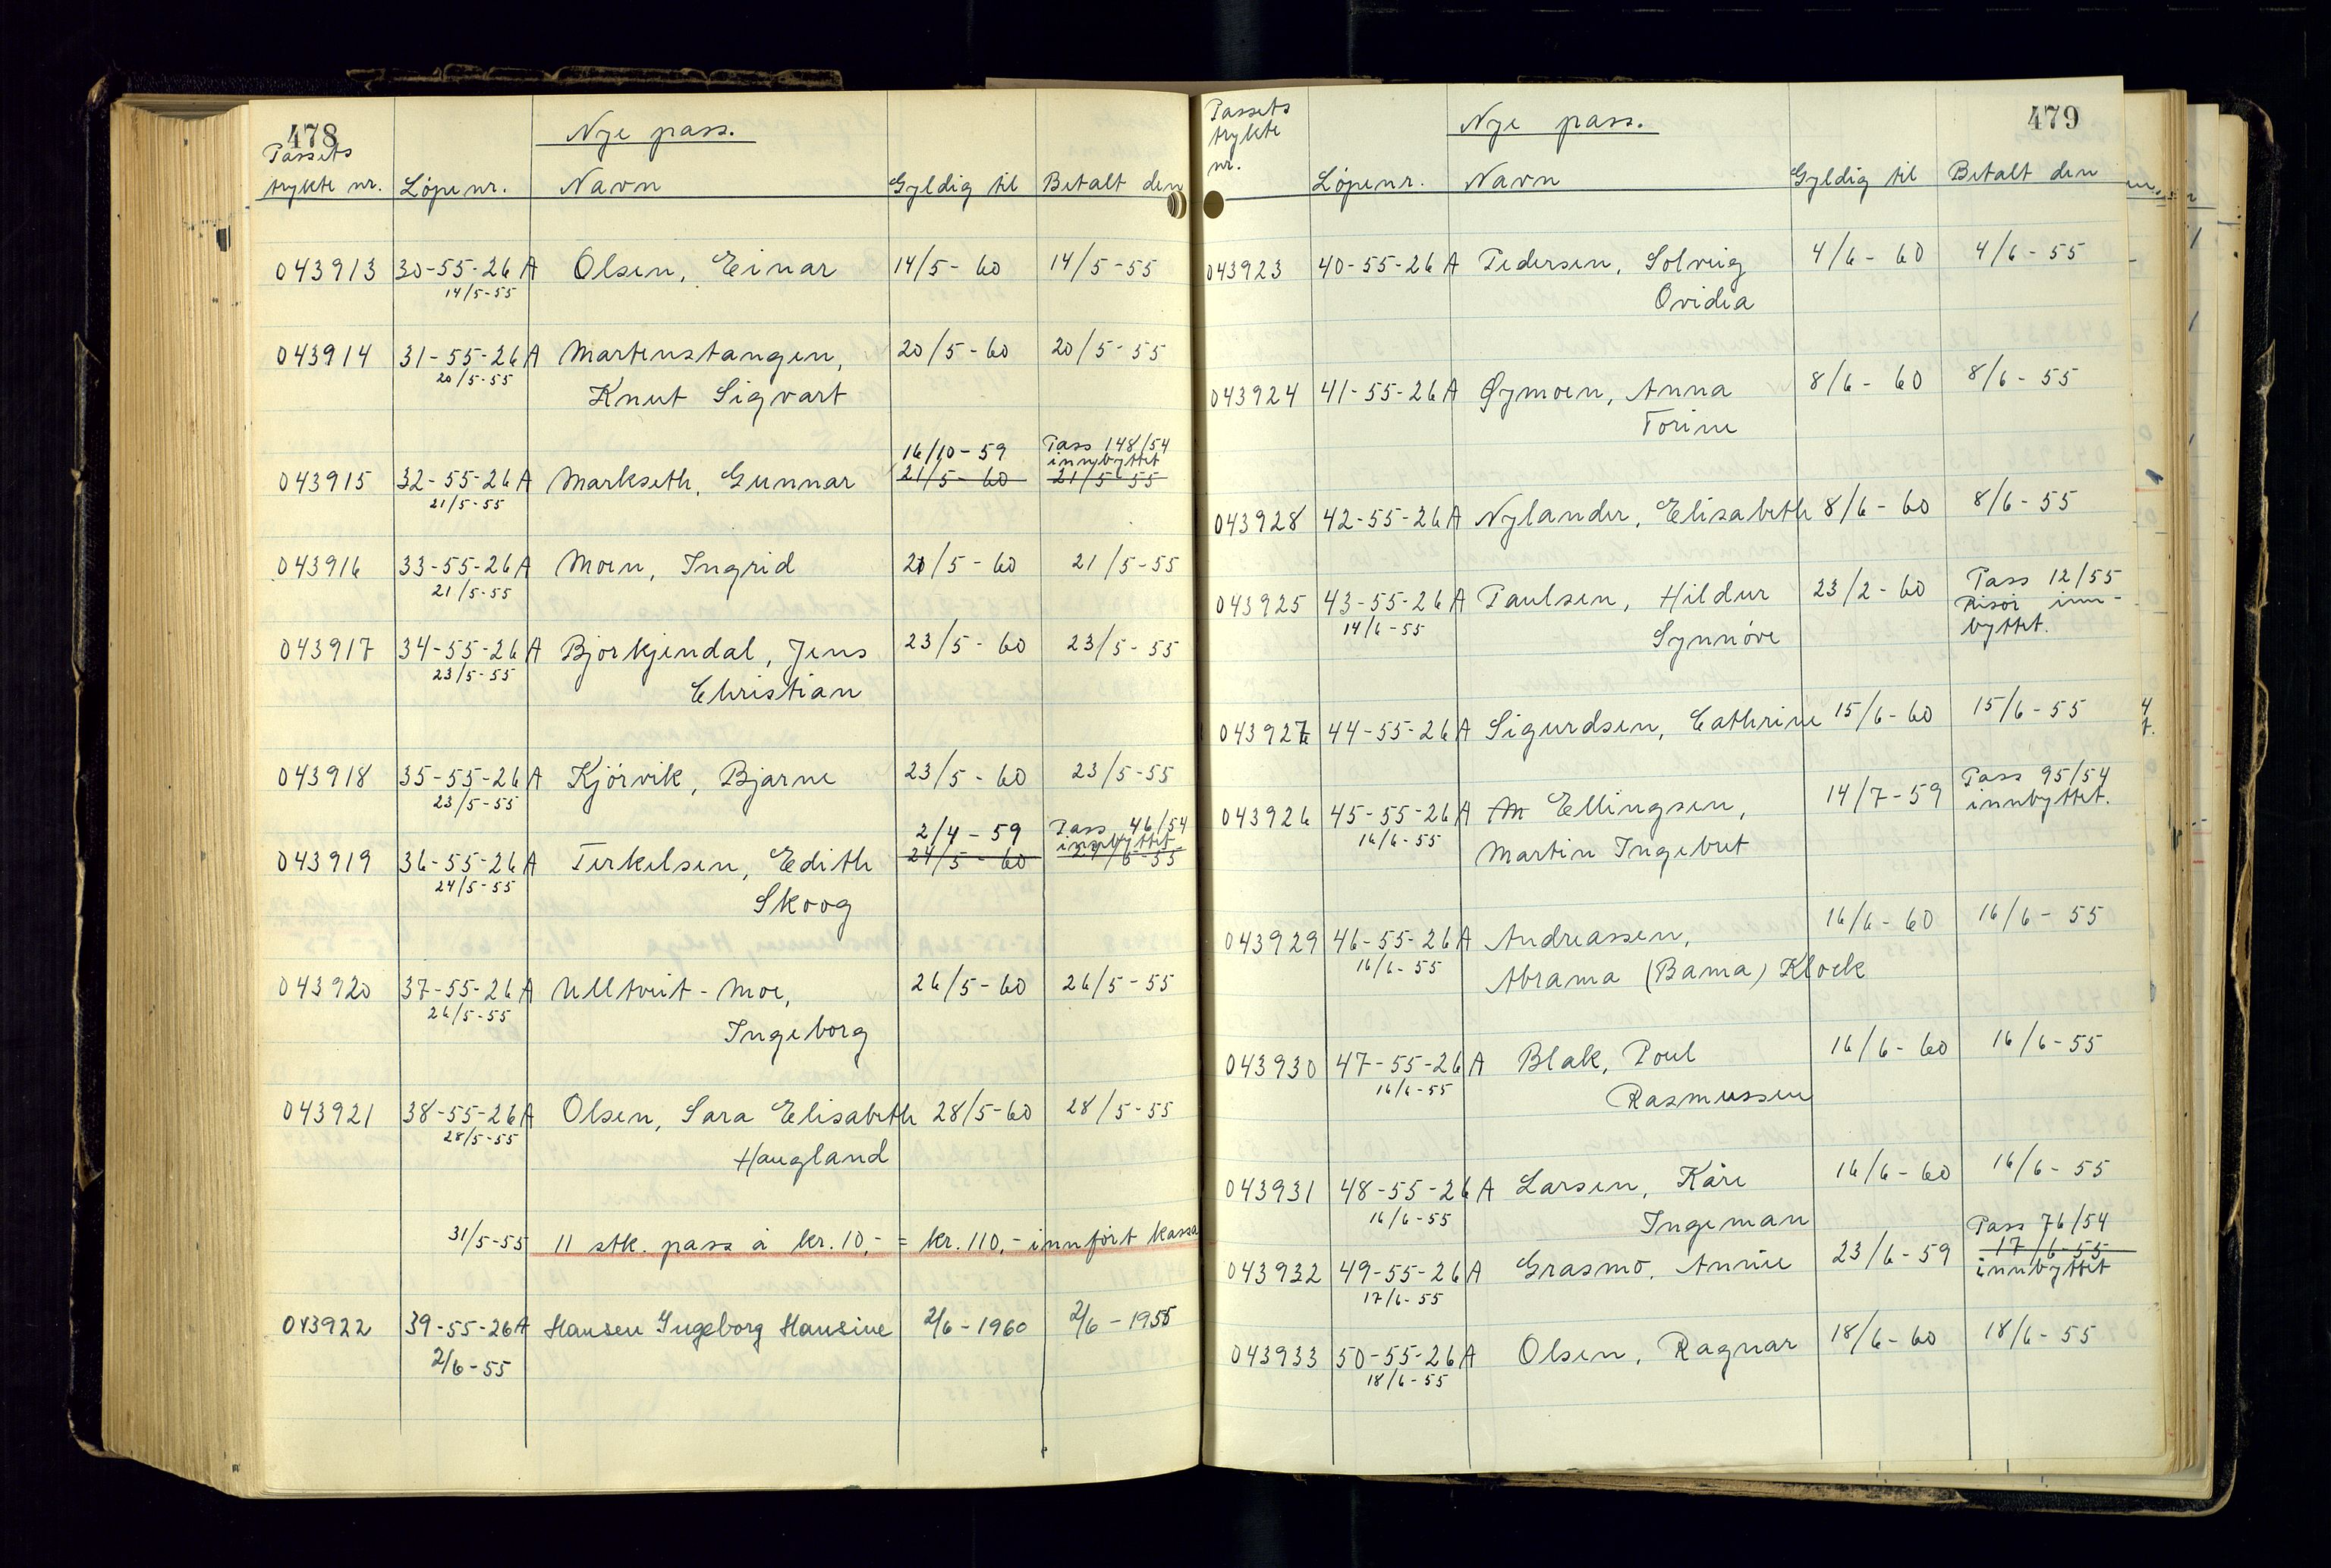 478
Nye pass.
Passets
trykte nr. Löpenr. Navn Gyldig til Betalt den
043913 30-55-26A Olsen, Einar 14/5-60 14/5-55
14/5-55
043914 31-55-26A Martenstangen, 20/5-60 20/5-55
20/5-55
Knut Sigvart
16/10-59 Pass 148/54
innbyttet
043915 32-55-26A Markseth, Gunnar 21/5-60 21/5-55
21/5-55
043916 33-55-26A Moen, Ingrid 21/5-60 21/5-55
21/5-55
043917 34-55-26A Bjorkjendal, Jens 23/5-60 23/5-55
23/5-55
Christian
043918 35-55-26A Kjörvik, Bjarne 23/5-60 23/5-55
23/5-55
2/4-59 Pass 46/54
innbyttet
043919 36-55-26A Terkelsen, Edith 24/5-60
24/5-55
Skoog
043920 37-55-26A Ulltveit-Moe, 26/5-60 26/5-55
26/5-55
Ingeborg
043921 38-55-26A Olsen, Sara Elisabeth 28/5-60 28/5-55
28/5-55
Haugland
31/5-55 11 stk. pass à kr. 10,- = kr. 110,- innfört kassa
043922 39-55-26A Hansen Ingeborg Hansine 2/6-1960 2/6-1955
2/6-55
479
Nye pass.
Passets
trykte
nr. Löpenr. Navn Gyldig til Betalt den
043923 40-55-26A Pedersen, Solveig 4/6-60 4/6-55
Ovidia
043924 41-55-26A Øymoen, Anna 8/6-60 8/6-55
Torine
043928 42-55-26A Nylander, Elisabeth 8/6-60 8/6-55
043925 43-55-26A Paulsen, Hildur 23/2-60 Pass 12/55
14/6-55 Risör inn-
Synnöve byttet.
043927 44-55-26A Sigurdsen, Cathrine 15/6-60 15/6-55
043926 45-55-26A M Ellingsen, 14/7-59 Pass 95/54
16/6-55 innbyttet.
Martin Ingebret
043929 46-55-26A Andreassen, 16/6-60 16/6-55
16/6-55
Abrama (Bama) Klock
043930 47-55-26A Blak, Poul 16/6-60 16/6-55
16/6-55
Rasmussen
043931 48-55-26A Larsen, Kåre 16/6-60 16/6-55
16/6-55
Ingeman
Pass 76/54
043932 49-55-26A Grasmo, Annie 23/6-59 17/6-55
17/6-55 innbyttet
043933 50-55-26A Olsen, Ragnar 18/6-60 18/6-55
18/6-55